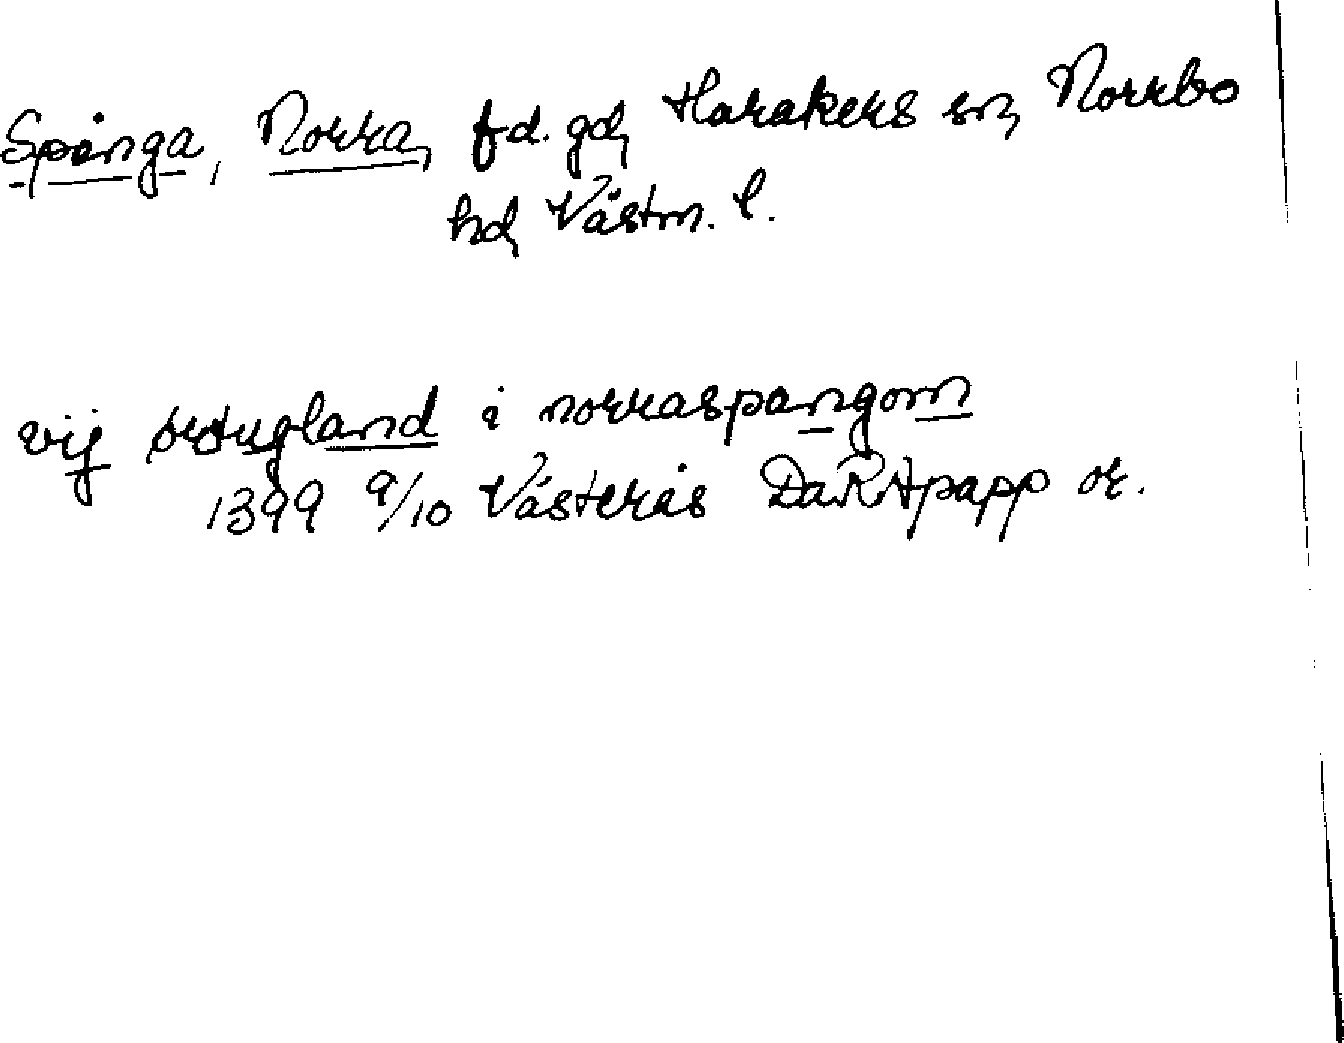 Spånga, Norra, fd. gd, Harakers sn, Norrbo
hd, Västm. l.
vij örtugland i norraspangom
1399 9/10 Västerås DaRApapp or.